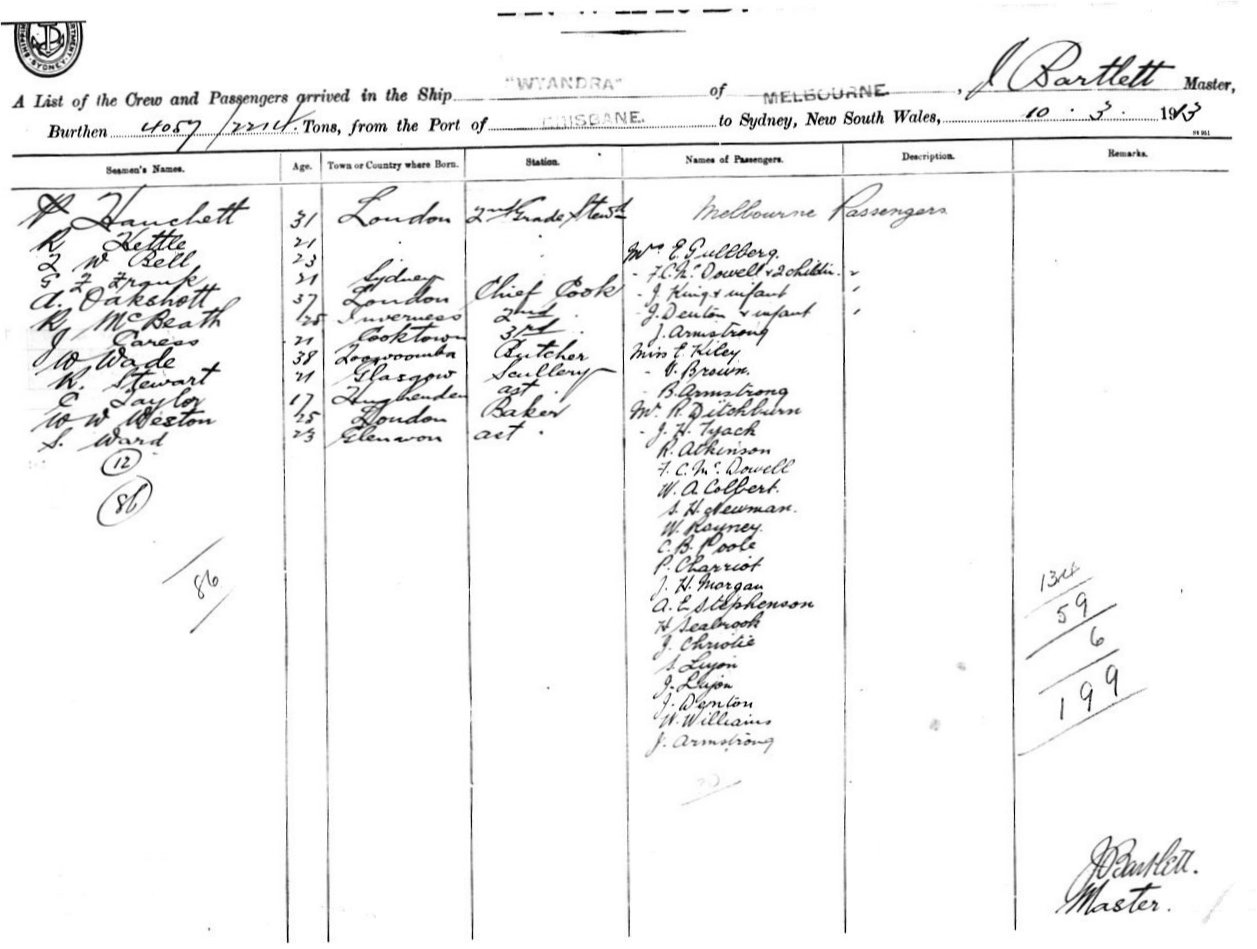 SYDNEY
A List of the Crew and Passengers arrived in the Ship "WYANDRA" of MELBOURNE, J Bartlett Master,
Burthen 4057/2214 Tons, from the Port of BRISBANE. to Sydney, New South Wales, 10 . 3 . 1913
Seamen's Names. Age. Town or Country where Born. Station. Names of Passengers. Description. Remarks.
Hanchett 31 London 2nd Grade Stewd
R Kettle 21 . .
W Bell 23 .
G Z Frank 21 Sydney
A. Oakshott 37 London Chief Cook
R McBeath 25 Inverness 2nd .
J Caress 21 Cooktown 3rd .
W Wade 38 Toowoomba Butcher
R. Stewart 21 Glasgow Scullery
E Taylor 17 Hughenden ast .
W W Weston 25 London Baker
S. Ward 23 Glenwon ast .
12
86
86
Melbourne Passengers
Mrs E. Gullberg.
- F.C. Mc Dowell & 2 childn.
- J. King & infant
- J. Denton & infant
J. Armstrong
Miss E. Kiley
- V. Brown.
- B. Armstrong
Mr. R. Ditchburn
- J. H. Tyack
R. Atkinson
F. C. Mc. Dowell
W. A. Colbert.
S. H. Newman.
W. Rayney.
C. B. Poole
P. Charriot
J. H. Morgan
A. E. Stephenson
H Seabrook
J. Christie
S. Lujon
J. Lujon
J. Denton
W. Williams
J. Armstrong
134
59
6
199
J Bartlett.
Master.